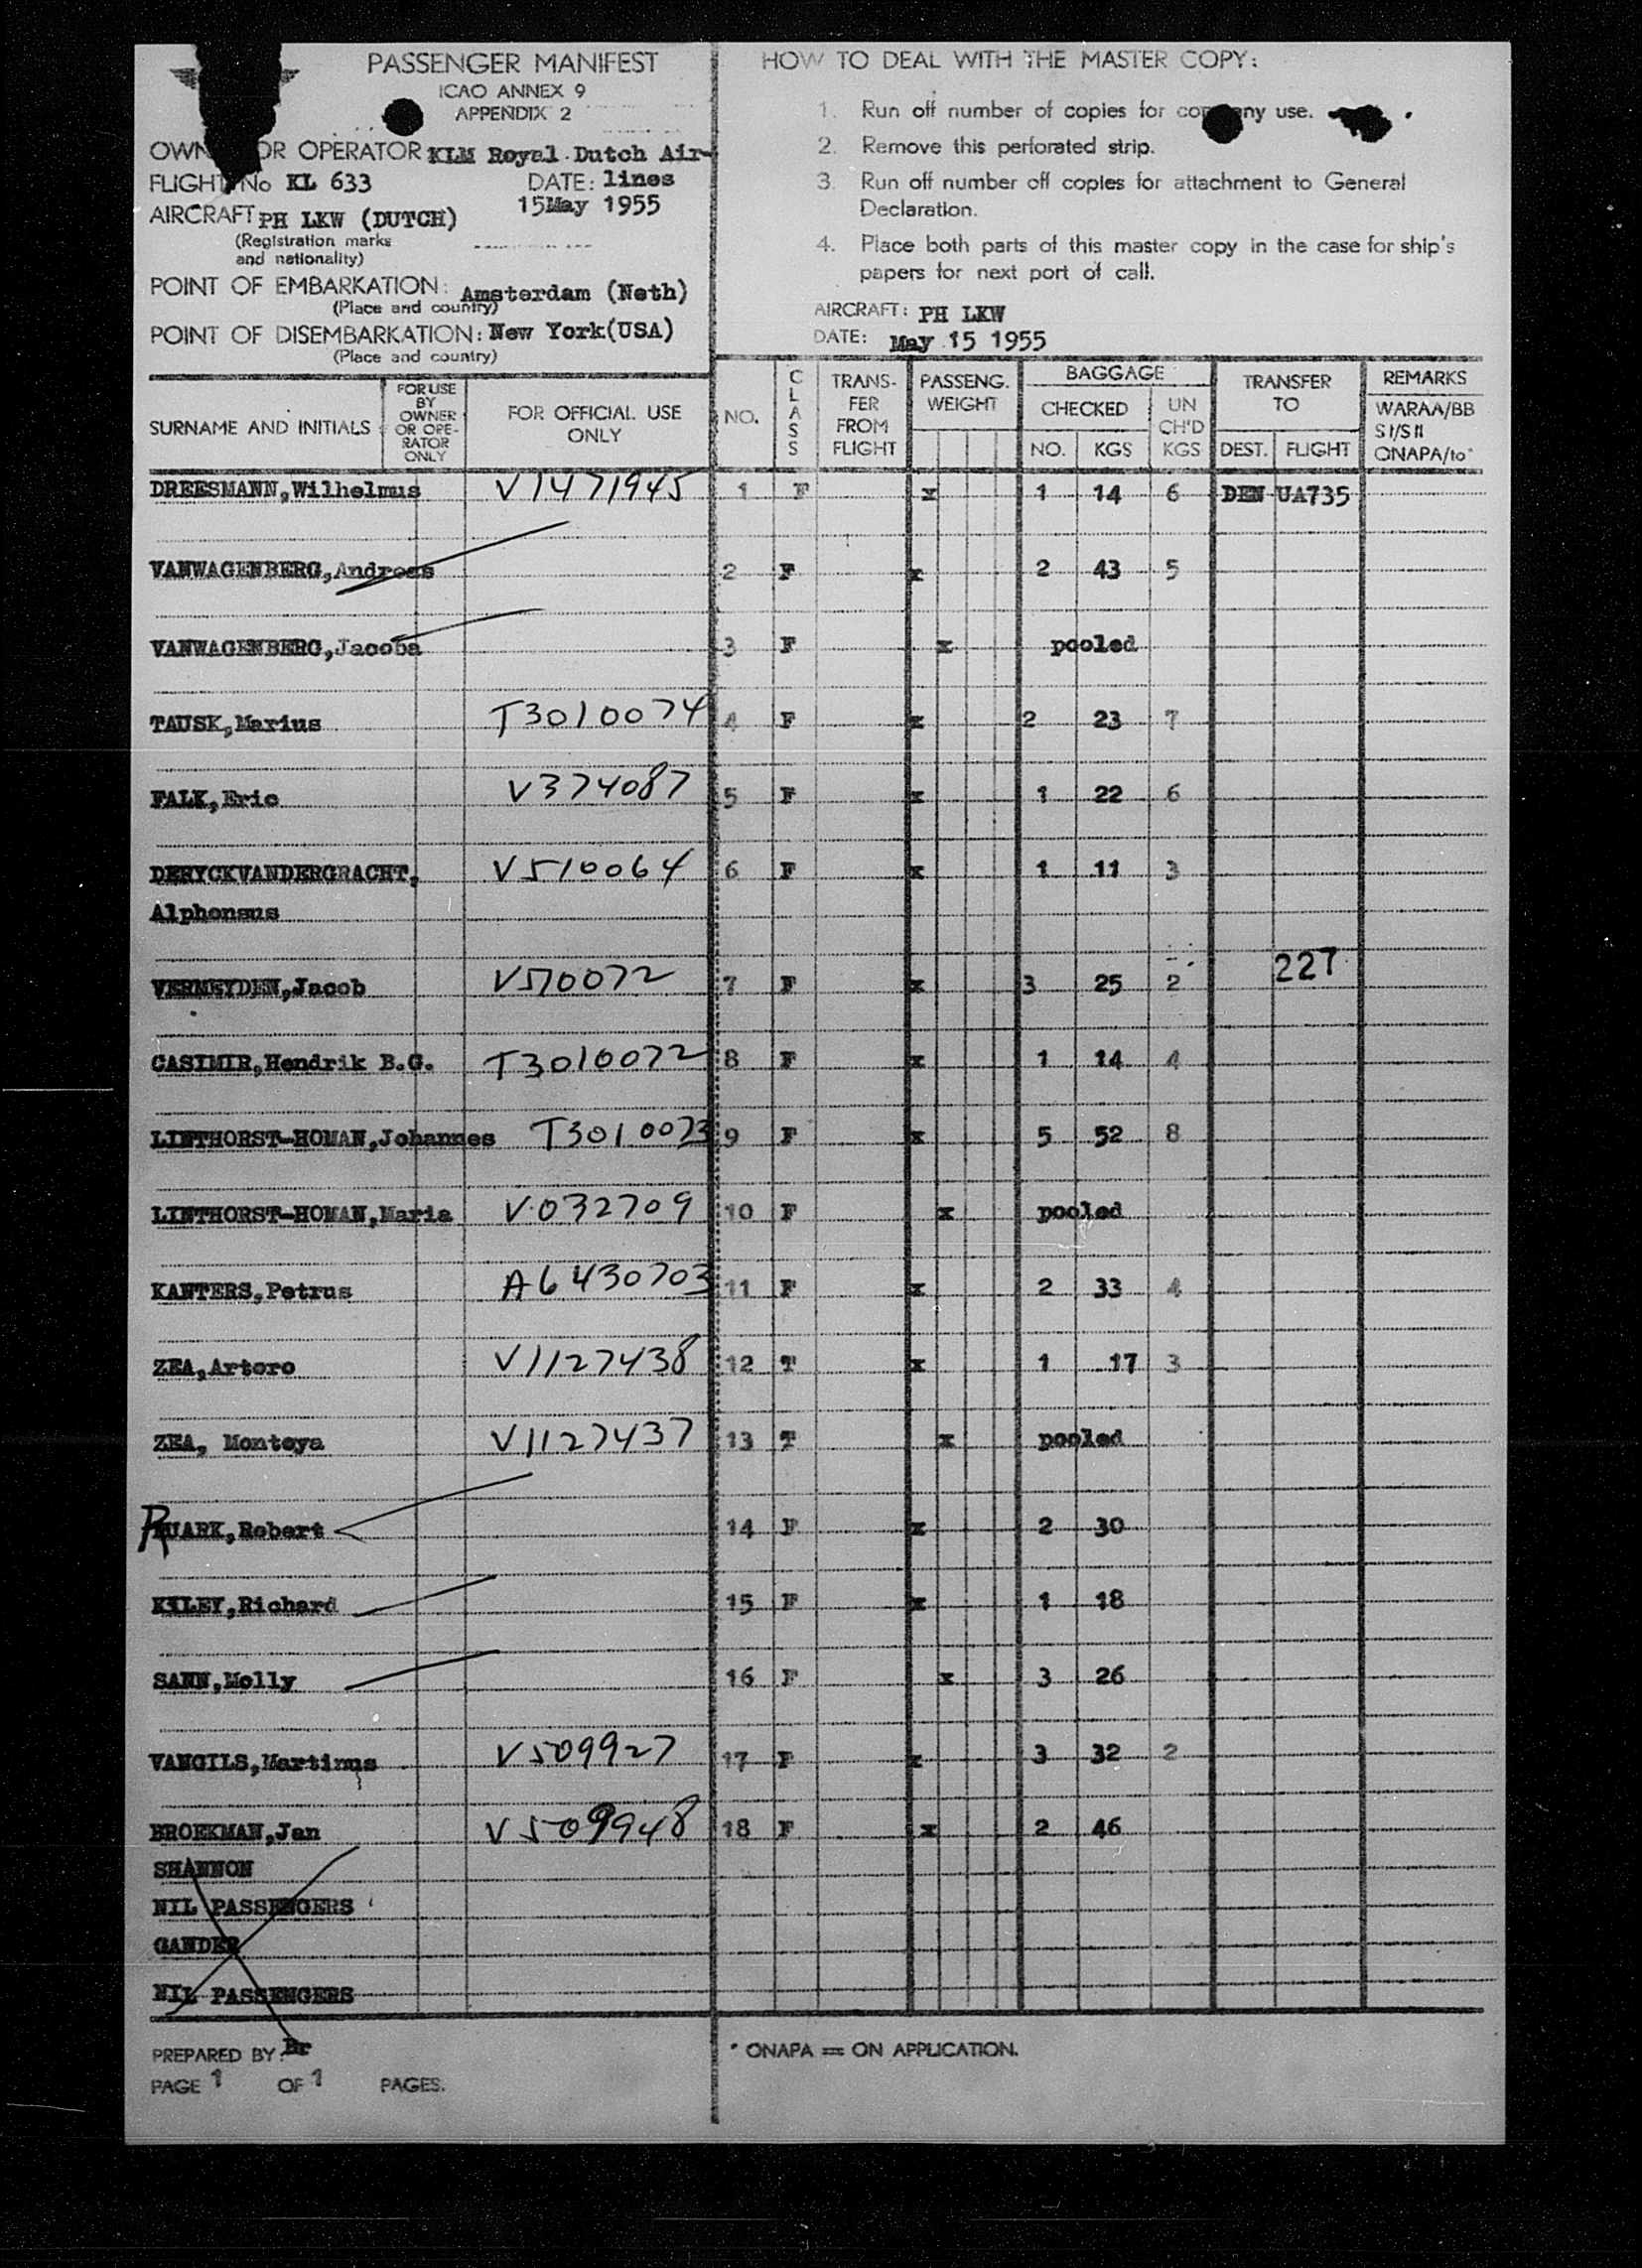 PASSENGER MANIFEST
ICAO ANNEX 9
APPENDIX 2
OR OPERATOR KLM Royal Dutch Air-
FLIGHT No KL 633 DATE: lines
15May 1955
AIRCRAFT PH LKW (DUTCH)
(Registration marks
and nationality)
POINT OF EMBARKATION: Amsterdam (Neth)
(Place and country)
POINT OF DISEMBARKATION: New York(USA)
(Place and country)
HOW TO DEAL WITH THE MASTER COPY:
1. Run off number of copies for company use.
2. Remove this perforated strip.
3. Run off number off copies for attachment to General
Declaration.
4. Place both parts of this master copy in the case for ship's
papers for next port of call.
AIRCRAFT: PH LKW
DATE: May 15 1955
SURNAME AND INITIALS
FOR USE
BY
OWNER
OR OPE-
RATOR
ONLY
FOR OFFICIAL USE
ONLY
NO.
CLASS
TRANS-
FER
FROM
FLIGHT
PASSENG.
WEIGHT
BAGGAGE
CHECKED
NO. KGS
UN
CH'D
KGS
TRANSFER
TO
DEST. FLIGHT
REMARKS
WARAA/BB
SI/SII
ONAPA/to*
DREESMANN,Wilhelmus V1471945 1 F x 1 14 6 DEN UA735
VANWAGENBERG,Andreas 2 F x 2 43 5
VANWAGENBERG,Jacoba 3 F x pooled
TAUSK,Marius T3010074 4 F x 2 23 7
FALK,Eric V374087 5 F x 1 22 6
DERYCKVANDERGRACHT, V510064 6 F x 1 11 3
Alphonsus
227
VERMEYDEN,Jacob V510072 7 F x 3 25 2
CASIMIR,Hendrik B.G. T3010072 8 F x 1 14 4
LINTHORST-HOMAN,Johannes T3010073 9 F x 5 52 8
LINTHORST-HOMAN,Maria V032709 10 F x pooled
KANTERS,Petrus A6430703 11 F x 2 33 4
ZEA,Artoro V1127438 12 T x 1 17 3
ZEA, Montoya V1127437 13 T x pooled
RUARK,Robert 14 F x 2 30
KILEY,Richard 15 F x 1 18
SANN,Molly 16 F x 3 26
VANGILS,Martinus V509927 17 F x 3 32 2
BROEKMAN,Jan V509948 18 F x 2 46
SHANNON
NIL PASSENGERS
GANDER
NIL PASSENGERS
PREPARED BY: Br
PAGE 1 OF 1 PAGES.
* ONAPA = ON APPLICATION.